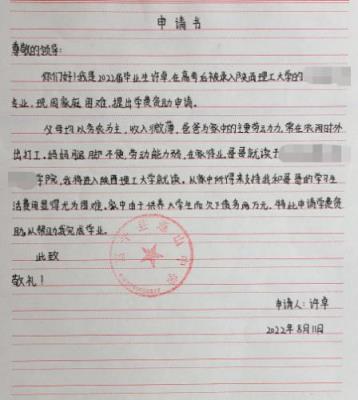 申请书
尊敬的领导：
你们好！我是2022届毕业生许卓，在高考后被录入陕西理工大学的
专业，现因家庭困难，提出学费资助申请。
父母均以务农为主，收入微薄，爸爸为家中的主要劳动力，常在农闲时外
出打工。妈妈腿脚不便，劳动能力弱，在家待业，哥哥就读于
学院，我将进入陕西理工大学就读。从家中所得来支持我和哥哥的学习生
活费用显得尤为困难，家中由于供养大学生而欠下债务两万元，特此申请学费资
助，以帮助我完成学业。
此致
敬礼！
申请人：许卓
2022年8月11日